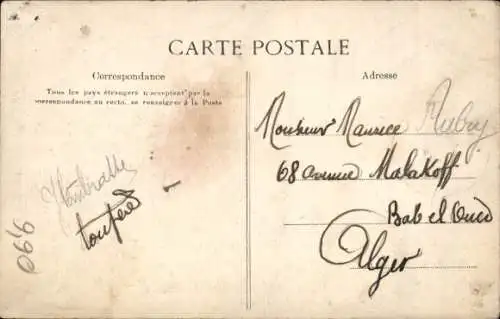 CARTE POSTALE
Correspondance
Tous les pays étrangers n'acceptent pas la
correspondance au recto, se renseigner à la Poste
Adresse
Monsieur Maurice Aubry
68 avenue Malakoff
Bab el Oued
Alger
066